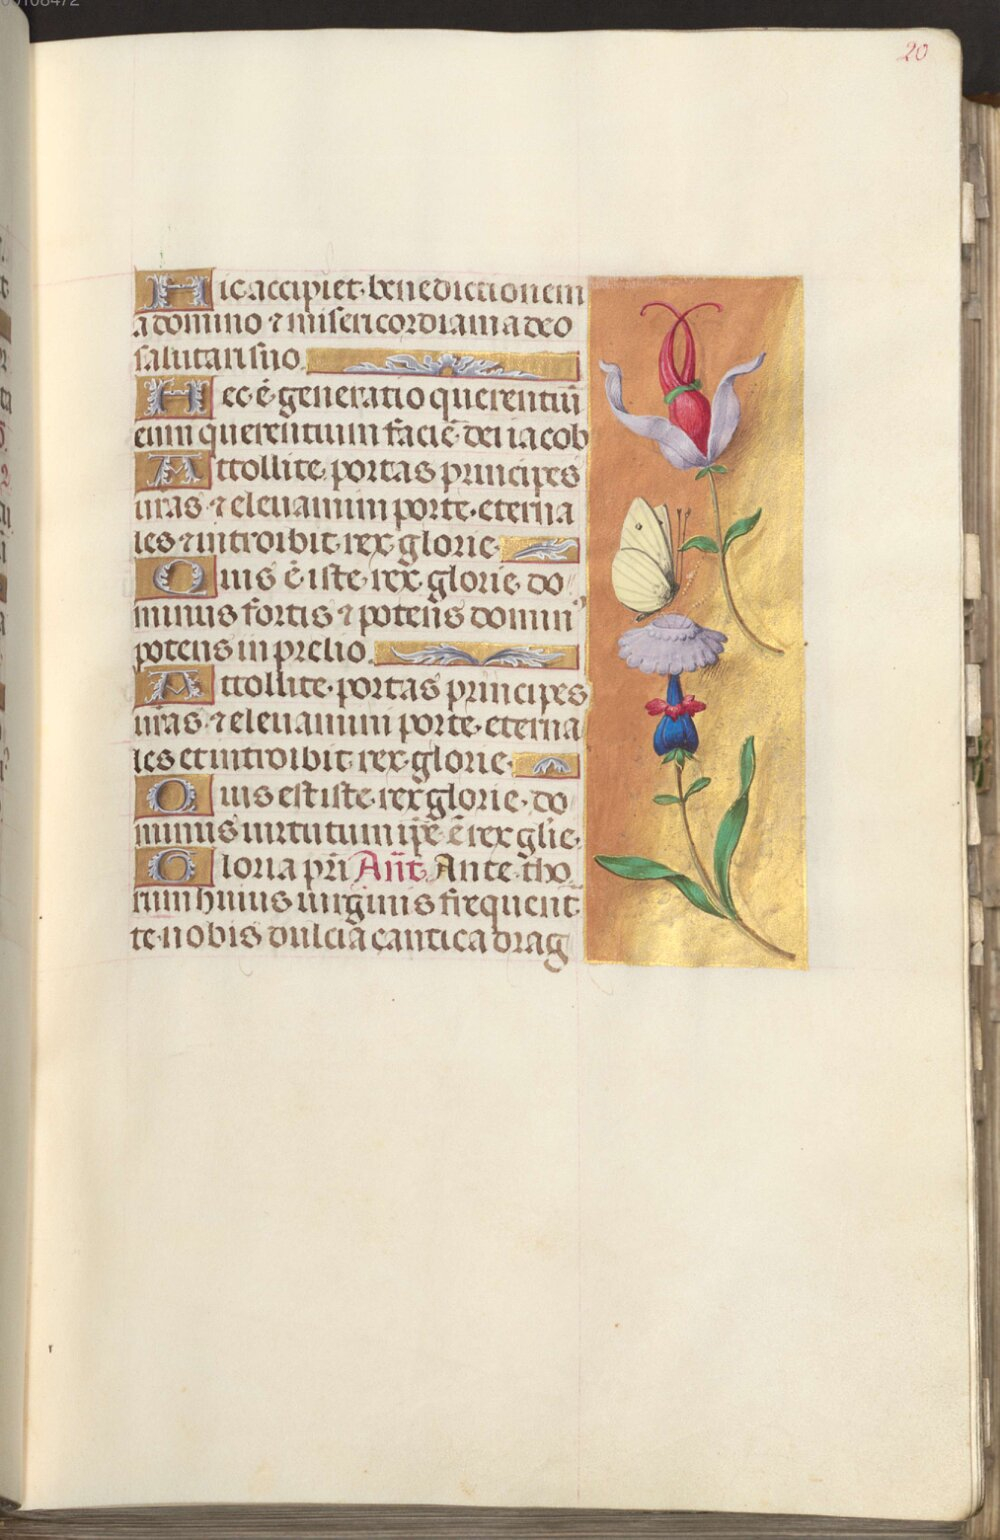 20
Hic accipiet benedictionem
a domino ⁊ misericordiam a deo
salutari suo
Hec ē generatio querentiū
eum querentium faciē dei iacob
Attollite portas principes
uras ⁊ eleuamini porte eterna
les ⁊ introibit rex glorie
Quis ē iste rex glorie do
minus fortis ⁊ potens domin᾽
potens in prelio
Attollite portas principes
uras ⁊ eleuamini porte eterna
les et introibit rex glorie
Quis est iste rex glorie do
minus uirtutum ip̄e ē rex gl̄ie
Gloria pr̄i Ant̄ Ante tho
rum huius uirginis frequent
te nobis dulcia cantica drag